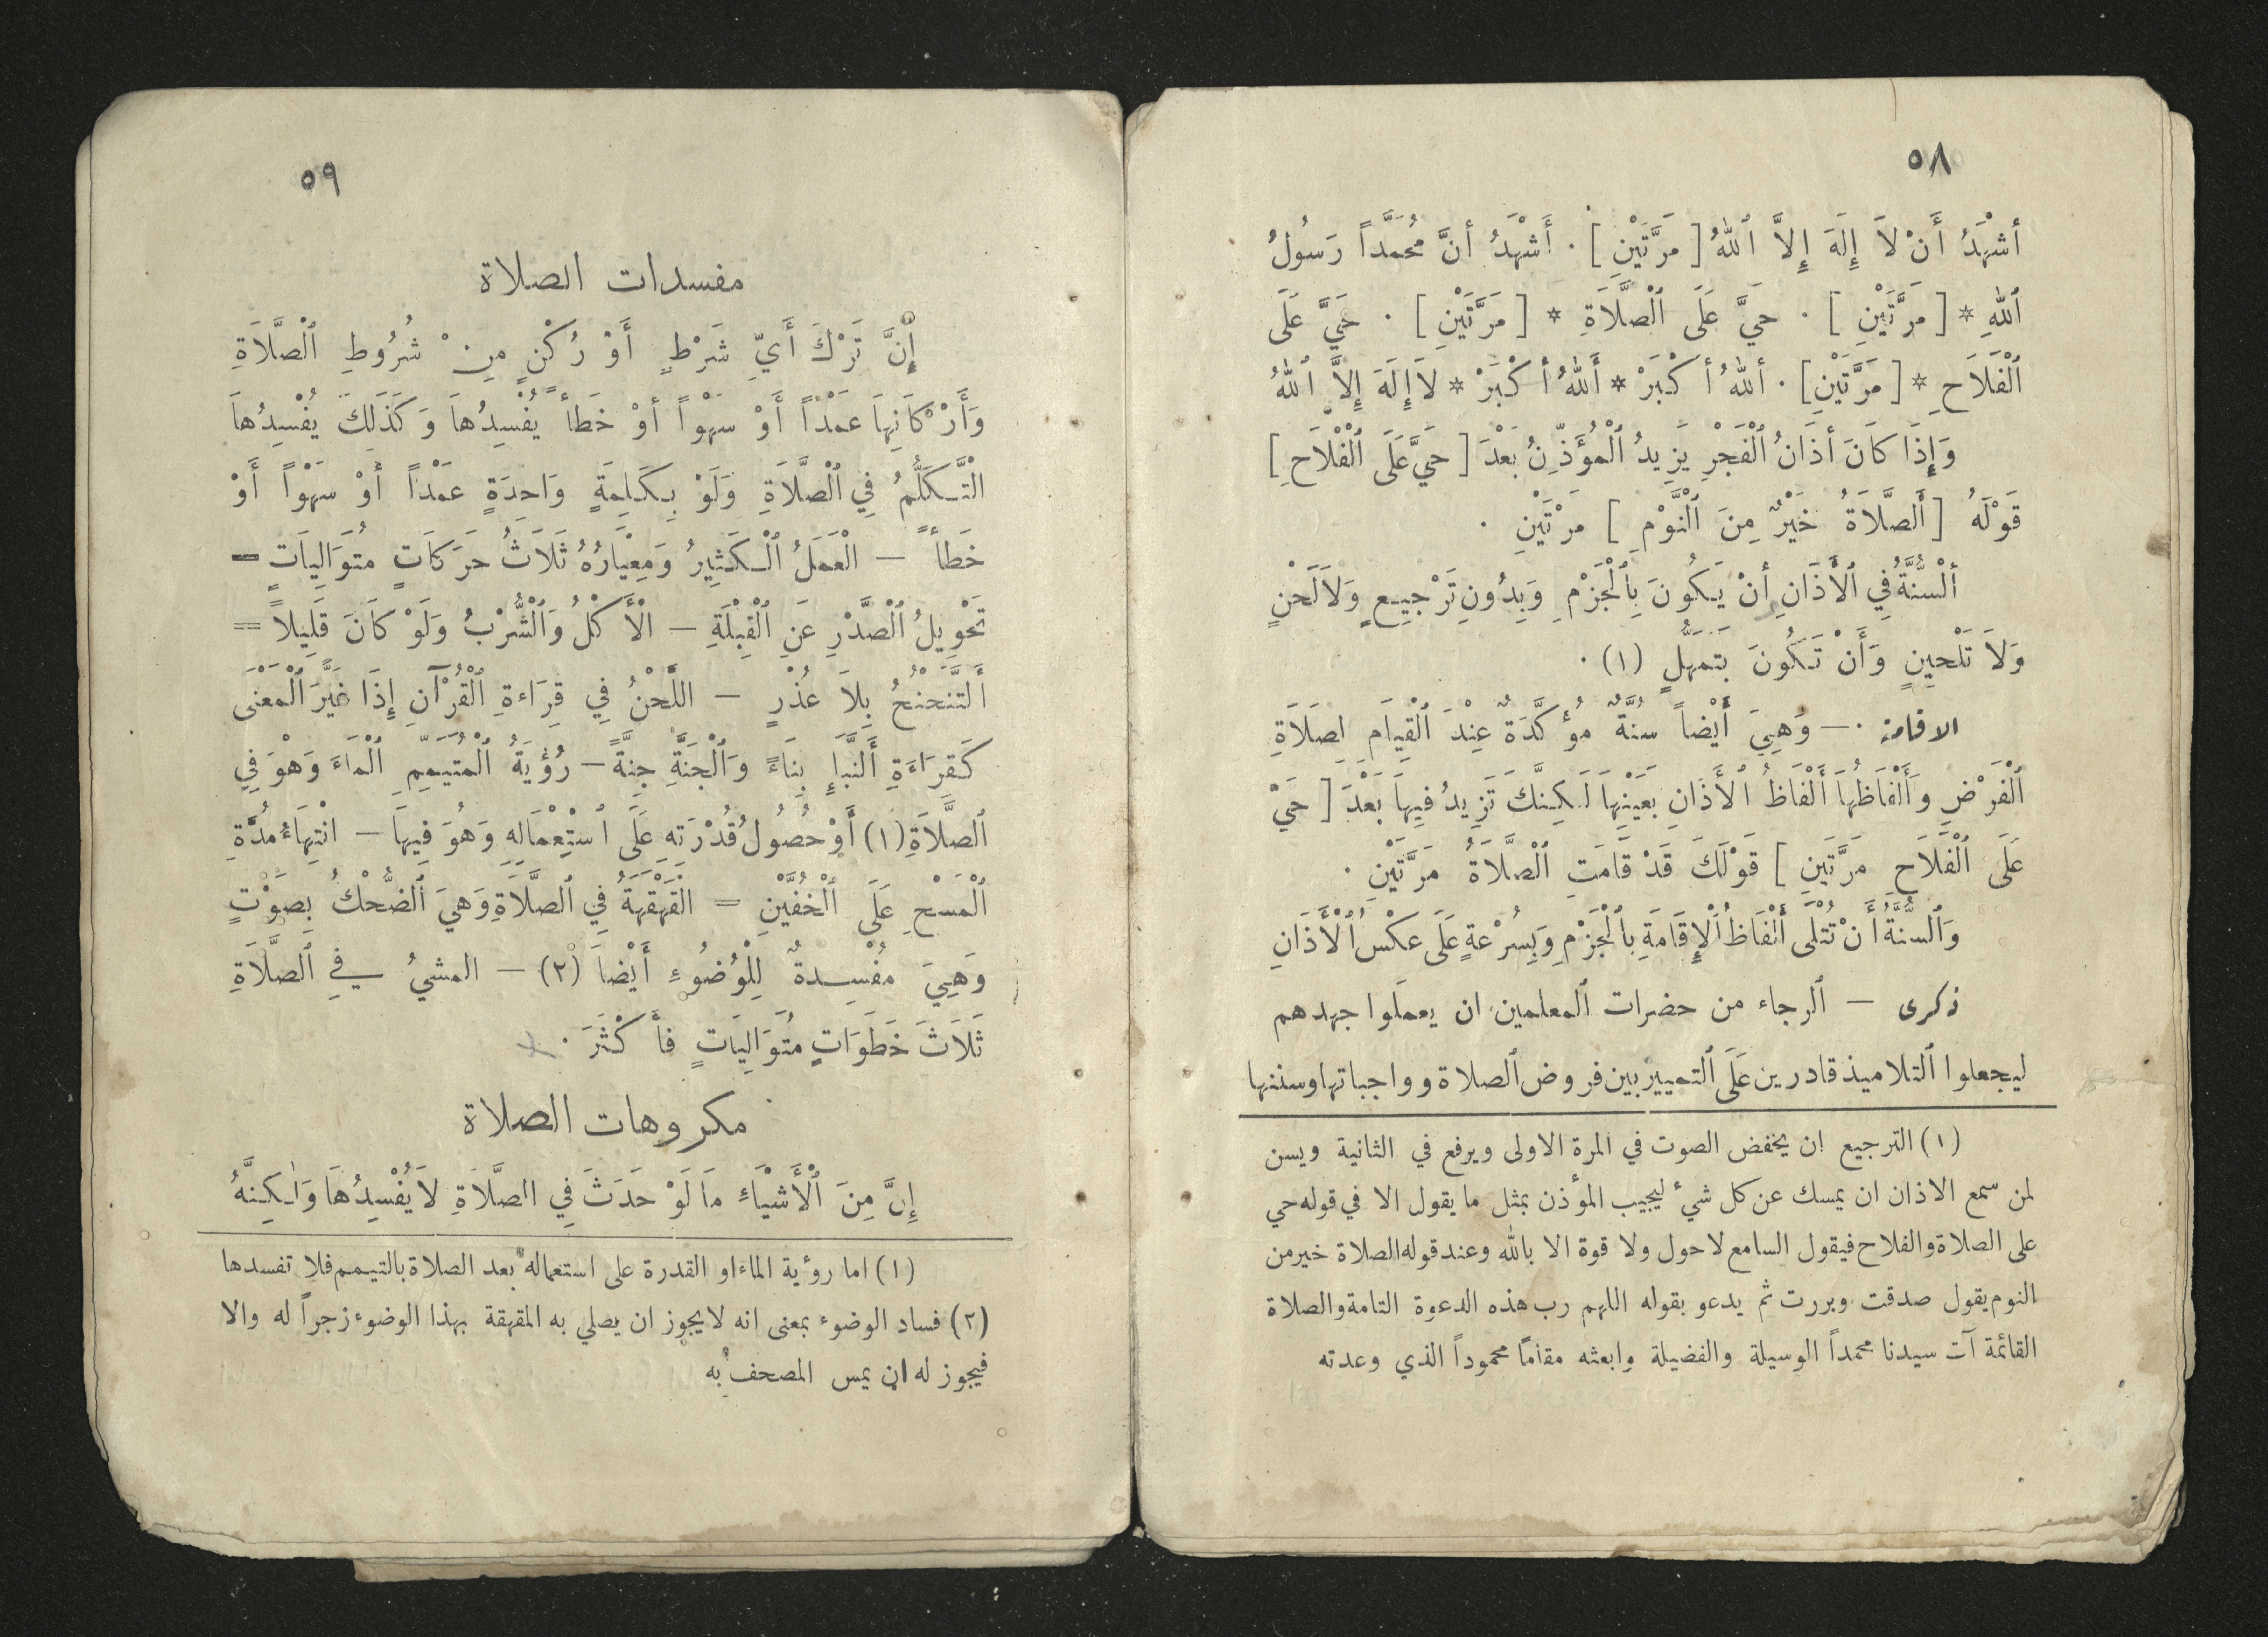 ٥٨
أَشْهَدُ أَنْ لاَ إِلَهَ إِلاَّ ٱللهُ [ مَرَّتَيْنِ ] · أَشْهَدُ أَنَّ مُحَمَّداً رَسُولُ
ٱللهِ * [ مَرَّتَيْنِ ] · حَيَّ عَلَى ٱلْصَّلاَةِ * [ مَرَّتَيْنِ ] · حَيَّ عَلَى
ٱلْفَلاَحِ * [ مَرَّتَيْنِ ] · أَللهُ أَكْبَرْ * أَللهُ أَكْبَرْ * لاَ إِلَهَ إِلاَّ ٱللهُ
وَإِذَا كَانَ أَذَانُ ٱلْفَجْرِ يَزِيدُ ٱلْمُؤَذِّنُ بَعْدَ [ حَيَّ عَلَى ٱلْفَلاَحِ ]
قَوْلَهُ [ أَلصَّلاَةُ خَيْرٌ مِنَ ٱلْنَّوْمِ ] مَرَّتَيْنِ ·
أَلْسُّنَّةُ فِي ٱلأَذَانِ أَنْ يَكُونَ بِٱلْجَزْمِ وَبِدُونِ تَرْجِيعٍ وَلاَ لَحْنٍ
وَلاَ تَلْحِينٍ وَأَنْ تَكُونَ بَتَمَهُّلٍ (١) ·
الاقامة ·— وَهِيَ أَيْضاً سُنَّةٌ مُؤَكَّدَةٌ عِنْدَ ٱلْقِيَامِ لِصَلاَةِ
ٱلْفَرْضِ وَأَلْفَاظُهَا أَلْفَاظُ ٱلأَذَانِ بِعَيْنِهَا لَكِنَّكَ تَزِيدُ فِيهَا بَعْدَ [ حَيَّ
عَلَى ٱلْفَلاَحِ مَرَّتَيْنِ ] قَوْلَكَ قَدْ قَامَتِ ٱلْصَّلاَةُ مَرَّتَيْنِ ·
وَٱلسُّنَّةُ أَنْ تُتْلَى أَلْفَاظُ ٱلْإِقَامَةِ بِٱلْجَزْمِ وَبِسُرْعَةٍ عَلَى عَكْسِ ٱلْأَذَانِ
ذكرى — ٱلرجاء من حضرات ٱلمعلمين ان يعملوا جهدهم
ليجعلوا ٱلتلاميذ قادرين عَلَى ٱلتمييز بين فروض ٱلصلاة وواجباتها وسننها
(١) الترجيع ان يخفض الصوت في المرة الاولى ويرفع في الثانية ويسن
لمن سمع الاذان ان يمسك عن كل شيء ليجيب المؤذن بمثل ما يقول الا في قوله حي
على الصلاة والفلاح فيقول السامع لا حول ولا قوة الا بالله وعند قوله الصلاة خير من
النوم يقول صدقت وبررت ثم يدعو بقوله اللهم رب هذه الدعوة التامة والصلاة
القائمة آت سيدنا محمداً الوسيلة والفضيلة وابعثه مقاماً محموداً الذي وعدته
٥٩
مفسدات الصلاة
إِنَّ تَرْكَ أَيِّ شَرْطٍ أَوْ رُكْنٍ مِنْ شُرُوطِ ٱلْصَّلاَةِ
وَأَرْكَانِهَا عَمْداً أَوْ سَهْواً أَوْ خَطأً يُفْسِدُهَا وَكَذَلِكَ يُفْسِدُهَا
الْتَّكَلُّمُ فِي ٱلْصَّلاَةِ وَلَوْ بِكَلِمَةٍ وَاحِدَةٍ عَمْداً أَوْ سَهْواً أَوْ
خَطأً — الْعَمَلُ ٱلْكَثِيرُ وَمِعْيَارُهُ ثَلاَثُ حَرَكَاتٍ مُتَوَالِيَاتٍ —
تَحْوِيلُ ٱلْصَّدْرِ عَنِ ٱلْقِبْلَةِ — الأَكْلُ وَٱلْشُّرْبُ وَلَوْ كَانَ قَلِيلاً =
أَلتَّنَحْنُحُ بِلاَ عُذْرٍ — اللَّحْنُ فِي قِرَاءةِ ٱلْقُرْآنِ إِذَا غَيَّرَ ٱلْمَعْنَى
كَقِرَاءَةِ أَلنَّبَإِ بِنَاءً وَٱلْجَنَّةِ جِنَّةً — رُؤْيَةُ ٱلْمُتَيَمِّمِ ٱلْمَاءَ وَهُوَ فِي
ٱلصَّلاَةِ (١) أَوْ حُصُولُ قُدْرَتِهِ عَلَى ٱسْتِعْمَالِهِ وَهُوَ فِيهَا — انْتِهَاءُ مُدَّةِ
ٱلْمَسْحِ عَلَى ٱلْخُفَّيْنِ = الْقَهْقَهَةُ فِي ٱلصَّلاَةِ وَهِيَ ٱلضُّحْكُ بِصَوْتٍ
وَهِيَ مُفْسِدةٌ لِلْوُضُوءِ أَيْضاً (٢) — المشيُ فِي ٱلصَّلاَةِ
ثَلاَثَ خَطَوَاتٍ مُتَوَالِيَاتٍ فأَكْثَرَ ·
مكروهات الصلاة
إِنَّ مِنَ ٱلْأَشْيَاءِ مَا لَوْ حَدَثَ فِي الصَّلاَةِ لاَ يُفْسِدُهَا وَلكِنَّهُ
(١) اما رؤية الماء او القدرة على استعماله بعد الصلاة بالتيمم فلا تفسدها
(٢) فساد الوضوء بمعنى انه لا يجوز ان يصلي به المقهقة بهذا الوضوء زجراً له والا
فيجوز له ان يمس المصحف به